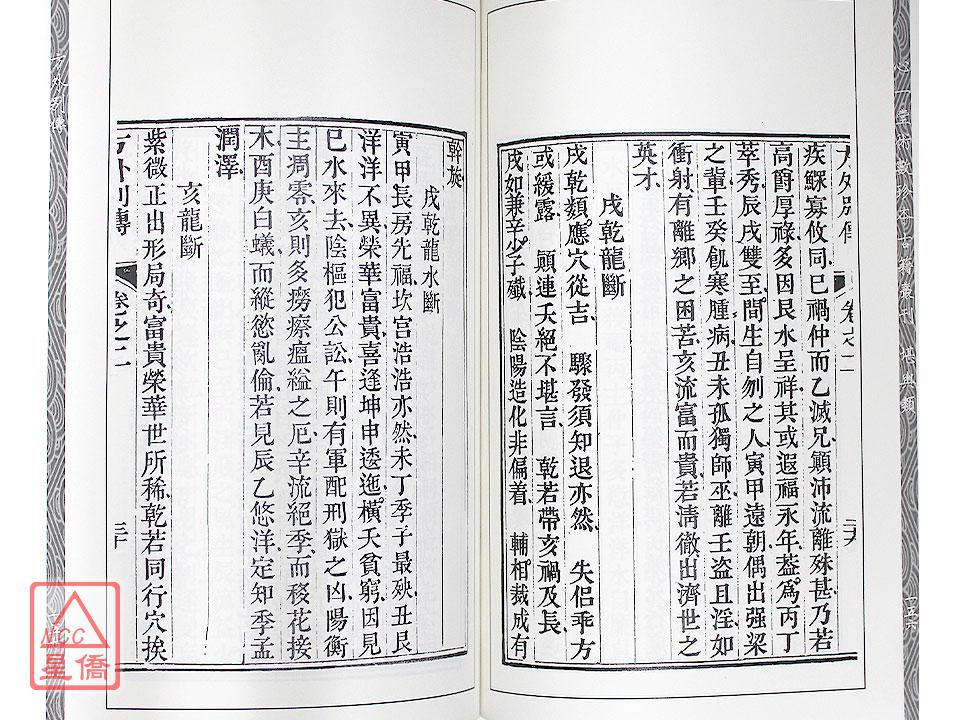 心一堂術數
方外別傳 卷之二 二十九
疾鰥寡攸同巳禍仲而乙滅兄顛沛流離殊甚乃若
高爵厚祿多因艮水呈祥其或遐福永年葢爲丙丁
萃秀辰戌雙至問生自刎之人寅甲遠朝偶出强梁
之輩壬癸飢寒腫病丑未孤獨師巫離壬盜且淫如
衝射有離鄉之困苦亥流富而貴若清徹出濟世之
英才
戌乾龍斷
戌乾頻應穴從吉 驟發須知退亦然 失侶乖方
或緩露 顛連夭絕不堪言 乾若帶亥禍及長
戌如兼辛少子殲 陰陽造化非偏着 輔相裁成有
幹旋
戌乾龍水斷
寅甲長房先福坎宫浩浩亦然未丁季子最殃丑艮
洋洋不異榮華富貴喜逢坤申逶迤橫夭貧窮因見
巳水來去陰樞犯公訟午則有軍配刑獄之凶陽衡
主凋零亥則多癆瘵瘟縊之厄辛流絕季而移花接
木酉庚白蟻而縱慾亂倫若見辰乙悠洋定知季孟
潤澤
亥龍斷
紫微正出形局奇富貴榮華世所稀乾若同行穴挨
方外別傳 卷之二 三十
方外別傳
NCC
星僑